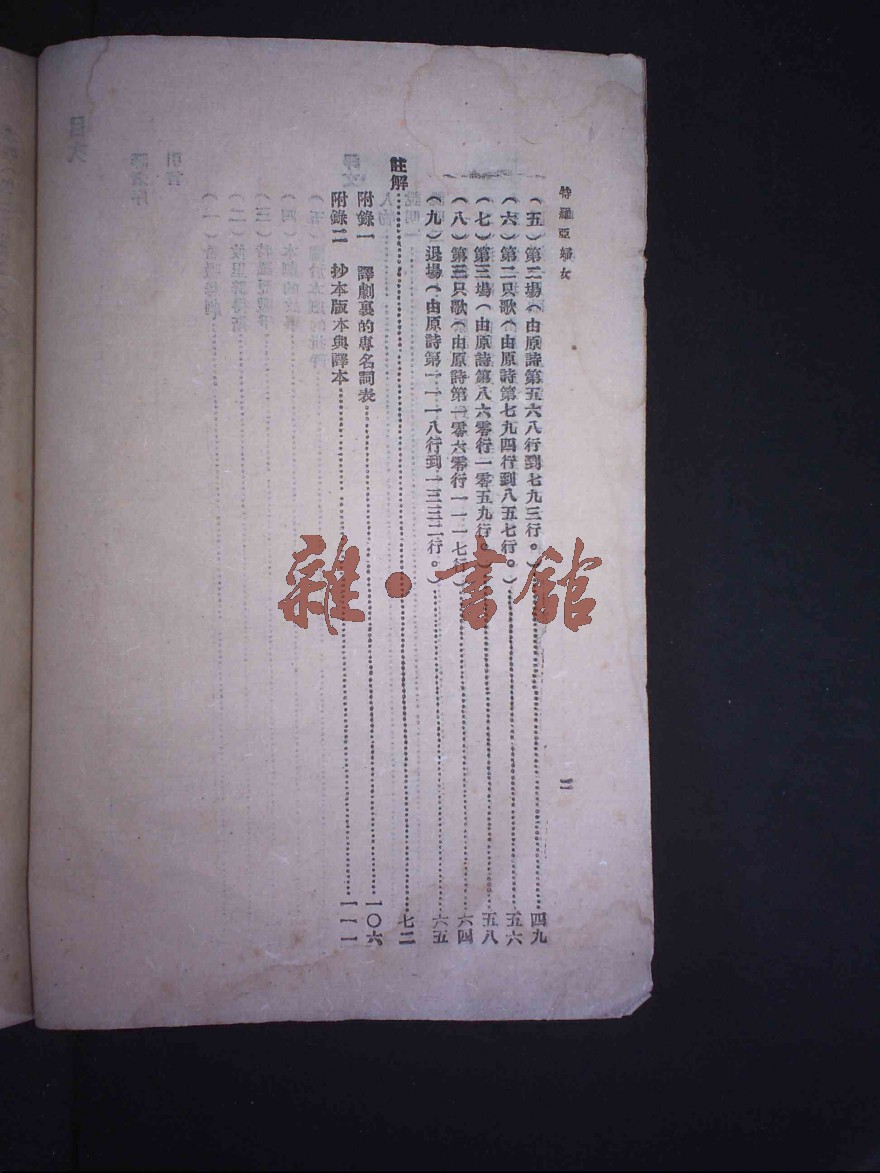 特羅亞婦女
二
(五)第二場(由原詩第五六八行到七九三行。)……四九
(六)第二只歌(由原詩第七九四行到八五七行。)……五六
(七)第三場(由原詩第八六零行一零五九行。)……五八
(八)第三只歌(由原詩第一零六零行一一一七行)……六四
(九)退場(由原詩第一一一八行到一三三二行。)……六五
註解……七二
附錄一 譯劇裏的專名詞表……一〇六
附錄二 抄本版本與譯本……一一一
雜·書館
目次
引言
譯者序